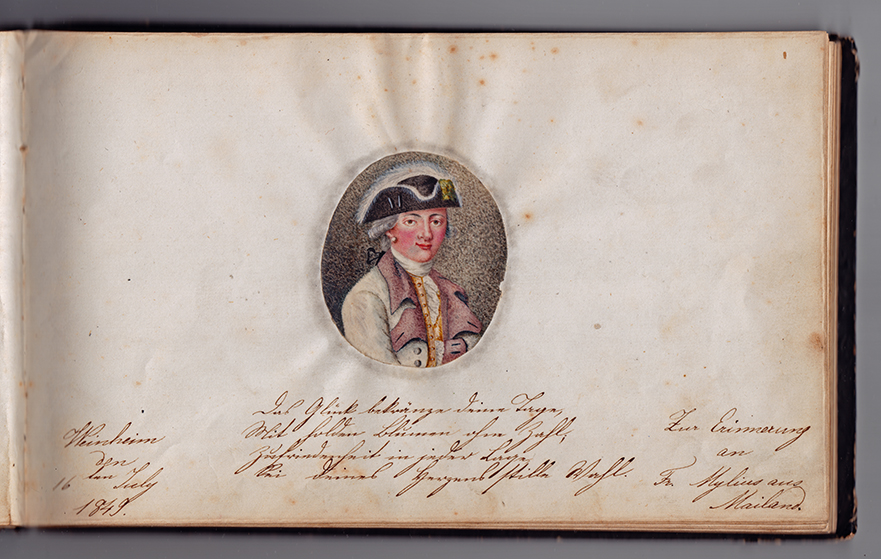 Weinheim
den
16 ten July
1849.
Das Glück bekränze deine Tage,
Mit holden Blumen ohne Zahl,
Zufriedenheit in jeder Lage,
Sei deines Herzens stille Wahl.
Zur Erinnerung
an
Fr. Mylius aus
Mailand.